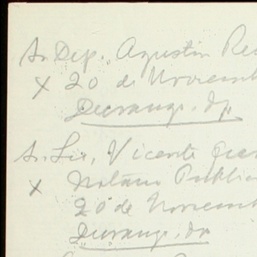 Sr. Dip. Agustin
x 20 de Noviemb
Durango, Dgo
Sr. Lic. Vicente
x Notario Public
20 de Noviemb
Durango, Dgo